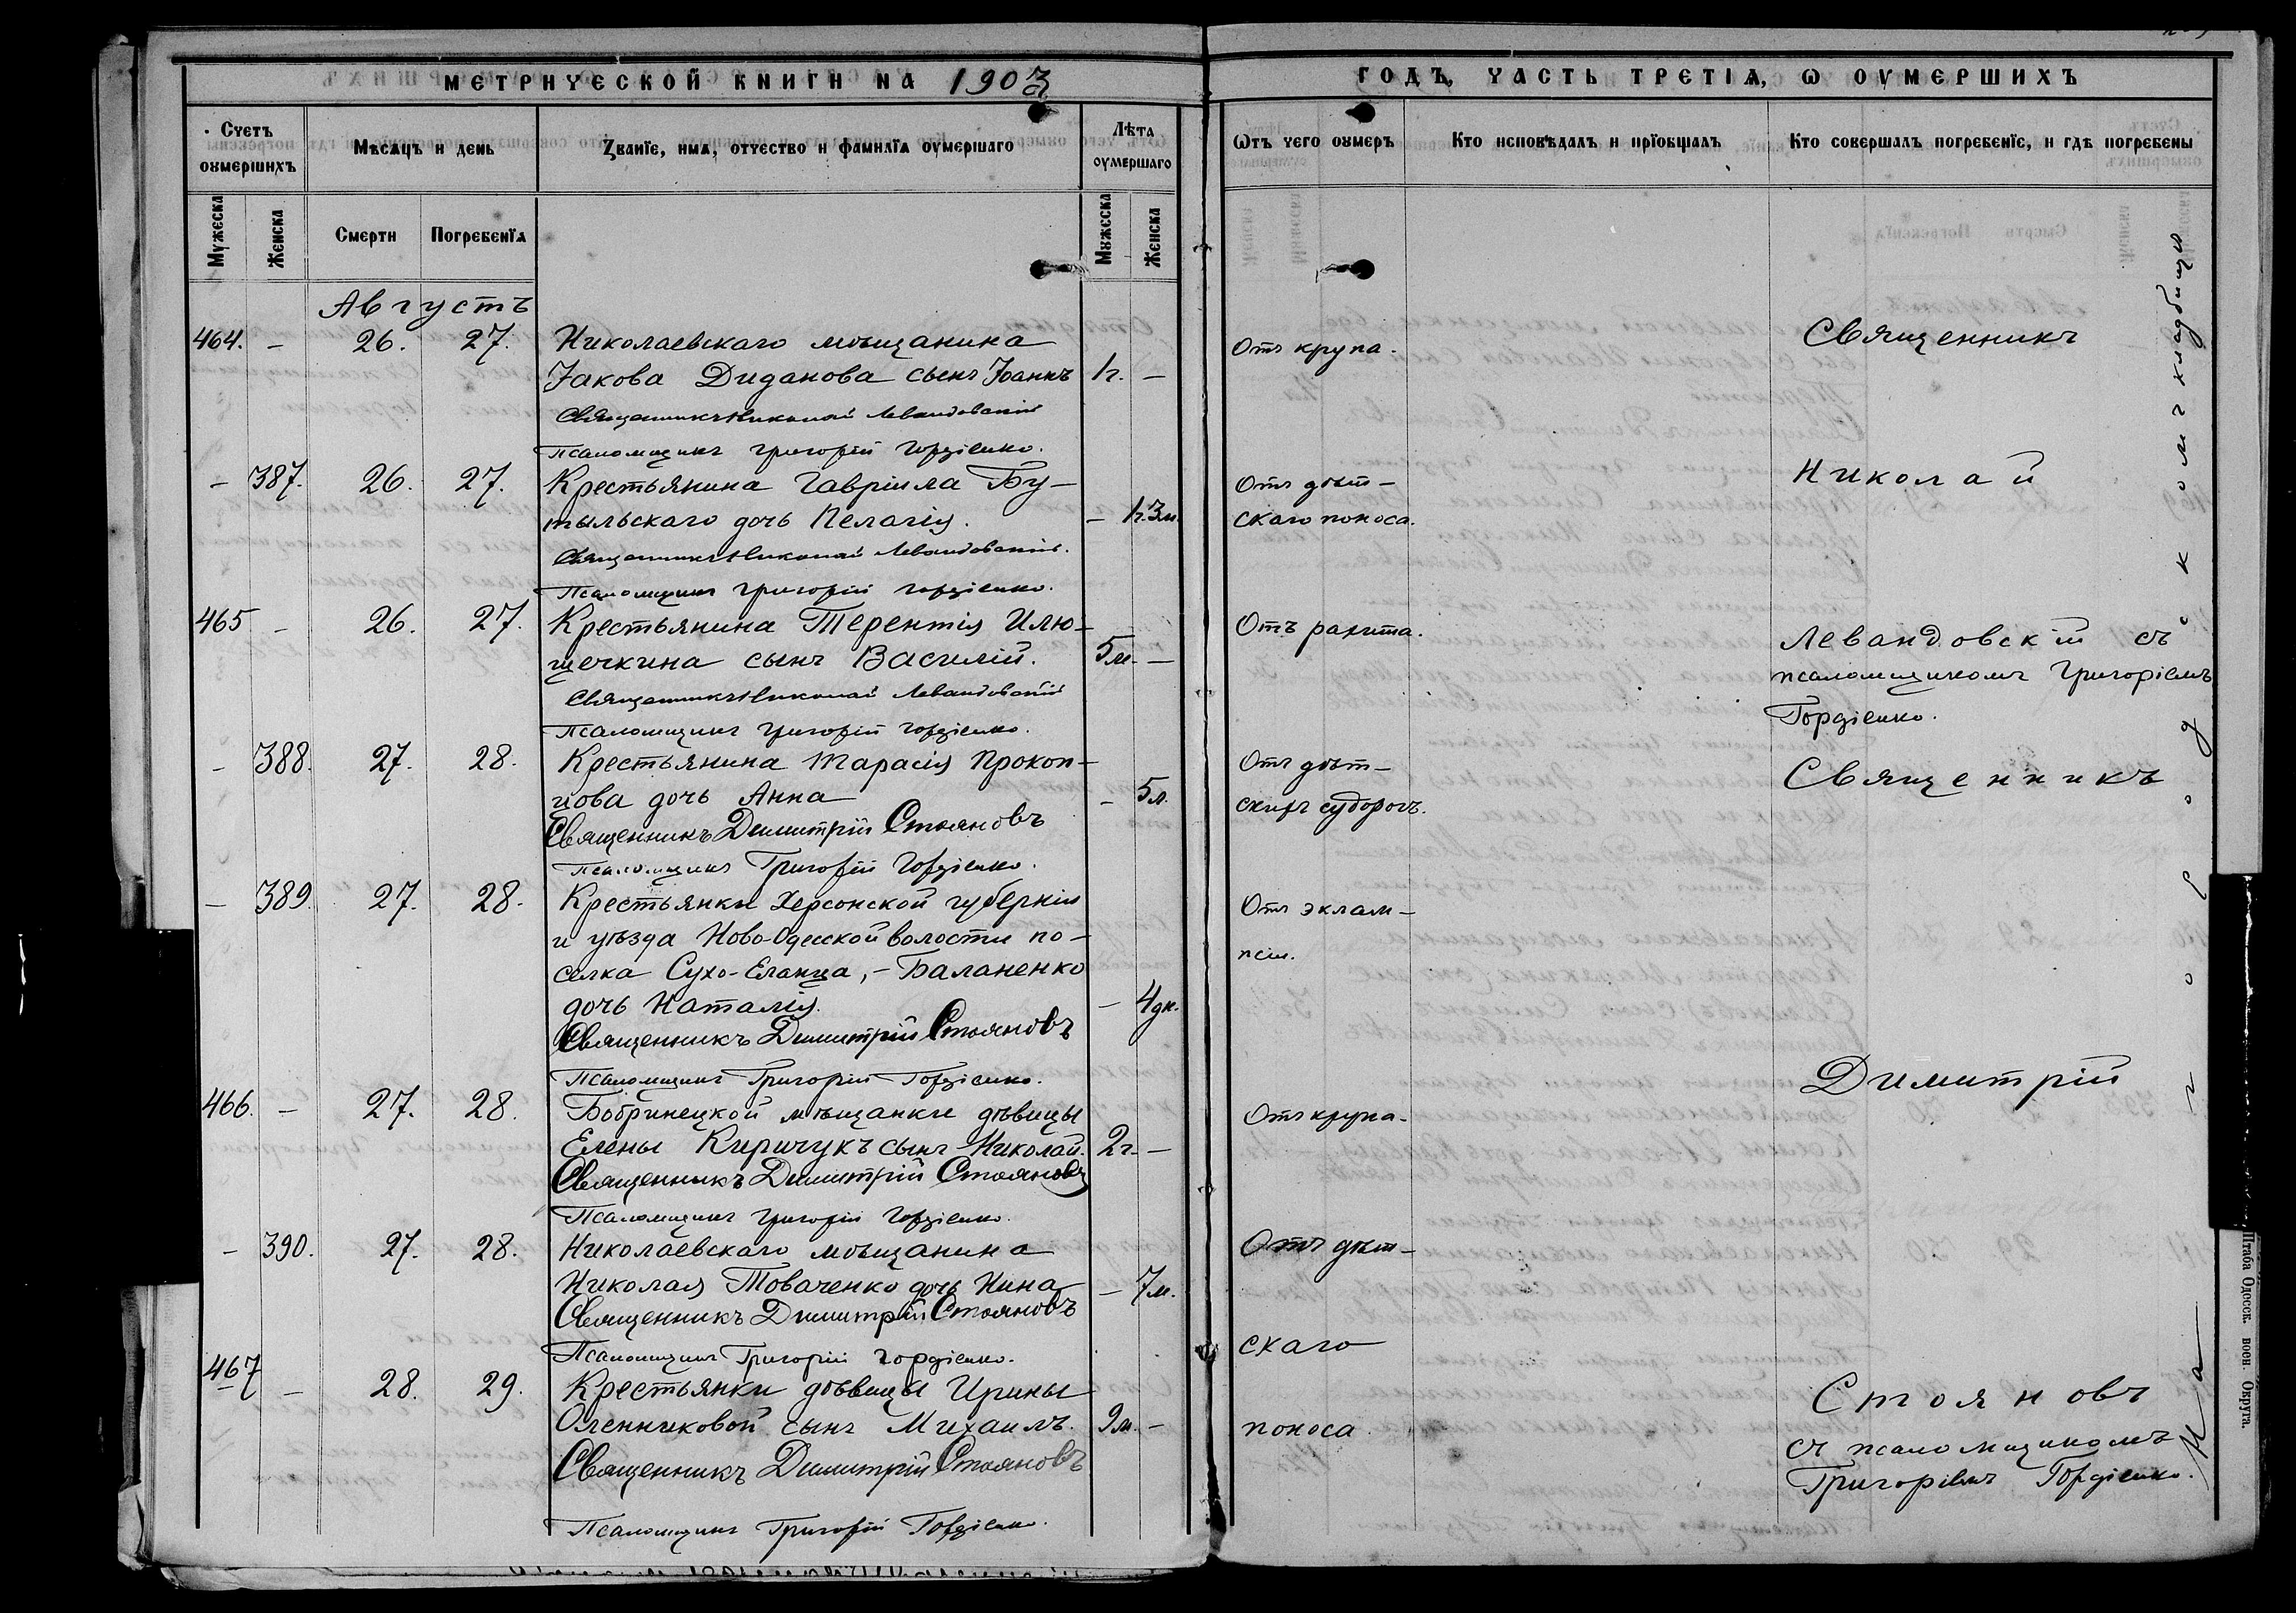 МЕТРИЧЕСКОЙ КНИГИ НА 1903
Счетъ оумершихъ
Мѣсяцъ и день
Званіе, имя, отчество и фамилія оумершаго
Лѣта оумершаго
Мужеска
Женска
Смерти
Погребенія
Мужеска
Женска
Августъ
464. – 26. 27. Николаевскаго мѣщанина
Іакова Диданова сынъ Іоаннъ 1г. –
Священникъ Николай Левандовскій
Псаломщикъ Григорій Гордіенко.
– 387. 26. 27. Крестьянина Гавріила Бу–
тыльскаго дочь Пелагія. – 1г.3м.
Священникъ Николай Левандовскій.
Псаломщикъ Григорій Гордіенко.
465 – 26. 27. Крестьянина Терентія Илю–
щечкина сынъ Василій. 5м. –
Священникъ Николай Левандовскій
Псаломщикъ Григорій Гордіенко.
– 388. 27. 28. Крестьянина Тарасія Прокоп–
цова дочь Анна – 5л.
Священникъ Димитрій Стояновъ
Псаломщикъ Григорій Гордіенко.
– 389. 27. 28. Крестьянки Херсонской губерніи
и уѣзда Ново-Одесской волости по–
селка Сухо-Еланца, – Баланенко
дочь Наталія. – 4дн.
Священникъ Димитрій Стояновъ
Псаломщикъ Григорій Гордіенко.
466. – 27. 28. Бобринецкой мѣщанки дѣвицы
Елены Киричукъ сынъ Николай. 2г. –
Священникъ Димитрій Стояновъ
Псаломщикъ Григорій Гордіенко.
– 390. 27. 28. Николаевскаго мѣщанина
Николая Товаченко дочь Нина – 7м.
Священникъ Димитрій Стояновъ
Псаломщикъ Григорій Гордіенко.
467 – 28. 29. Крестьянки дѣвицы Ирины
Оленниковой сынъ Михаилъ. 9м. –
Священникъ Димитрій Стояновъ
Псаломщикъ Григорій Гордіенко.
ГОДЪ, ЧАСТЬ ТРЕТІЯ, Ѡ ОУМЕРШИХЪ
Ѿтъ чего оумеръ
Кто исповѣдалъ и пріобщалъ
Кто совершалъ погребеніе, и гдѣ погребены
Отъ крупа.
Отъ дѣт–
скаго поноса.
Отъ рахита.
Отъ дѣт–
скихъ судорогъ.
Отъ эклам–
псіи.
Отъ крупа.
Отъ дѣт–
скаго
поноса
Священникъ
Николай
Левандовскій съ
псаломщикомъ Григоріемъ
Гордіенко.
Священникъ
Димитрій
Стояновъ
съ псаломщикомъ
Григоріемъ Гордіенко.
На городскомъ кладбищѣ
Штаба Одесск. воен. Округа.